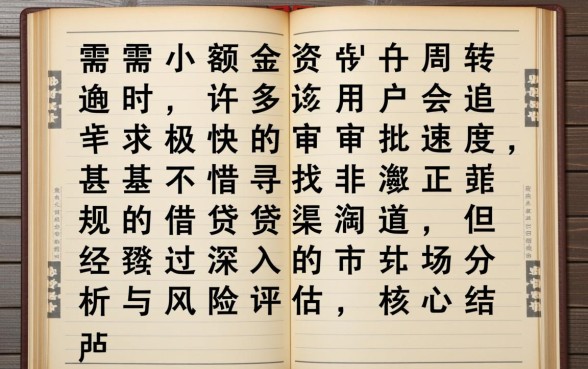 需需小额金资 周转
时，许多该用户会追
求极快的审审批速度，
甚基不惜寻找非正
规的借贷贷渠道，但
经过深入的市场分
析与风险评估，核心结